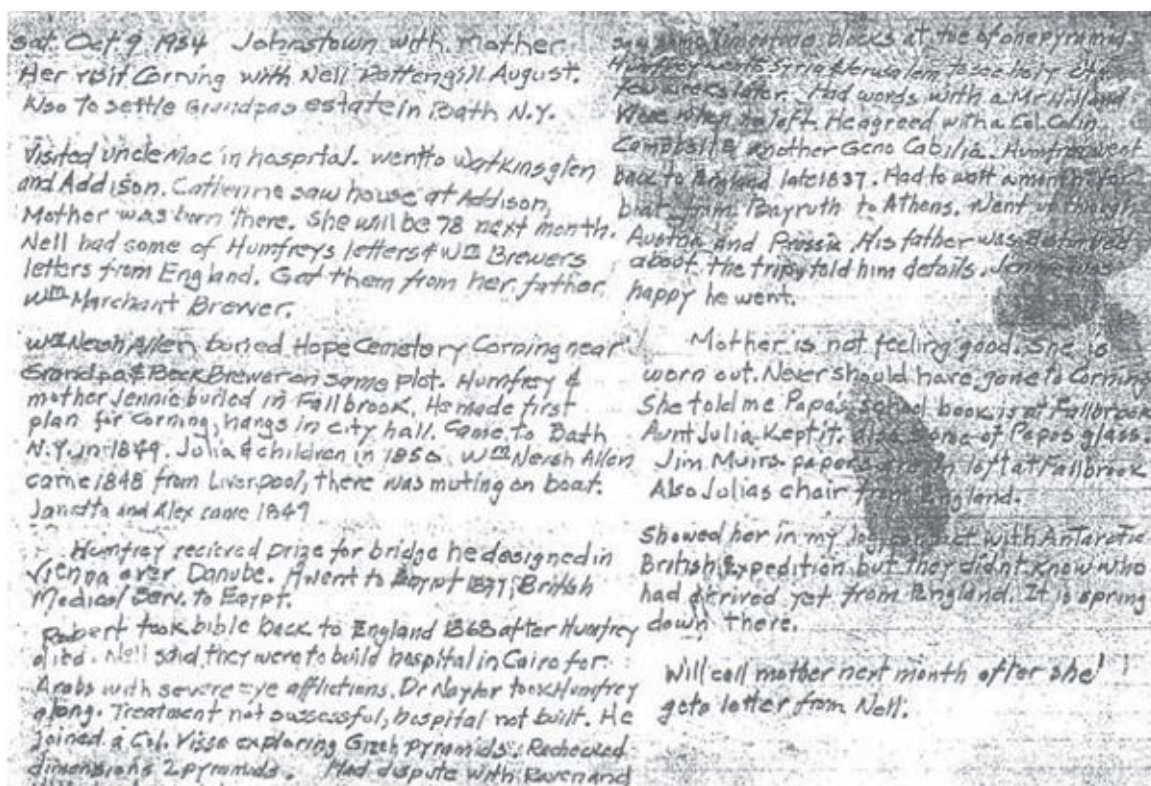 Sat. Oct. 9 1954 Johnstown with Mother.
Her visit Corning with Nell Pattengill August.
Also to settle Grandpas estate in Bath N.Y.
Visited uncle Mac in hospital. went to Watkins glen
and Addison. Catherine saw house at Addison,
Mother was born there. She will be 78 next month.
Nell had some of Humfreys letters & Wm Brewers
letters from England. Got them from her father.
Wm Marchant Brewer.
Wm Neish Allen buried Hope Cemetory Corning near
Grandpa & Beck Brewer on same plot. Humfrey &
mother Jennie buried in Fallbrook. He made first
plan for Corning, hangs in city hall. Came to Bath
N.Y. in 1849. Julia & children in 1850. Wm Neish Allen
came 1848 from Liverpool, there was muting on boat.
Janetta and Alex came 1849
Humfrey recieved prize for bridge he designed in
Vienna over Danube. H went to Egypt 1837, British
Medical Serv. to Egypt.
Robert took bible back to England 1868 after Humfrey
died. Nell said they were to build hospital in Cairo for
Arabs with severe eye afflictions. Dr Naylor took Humfrey
along. Treatment not successful, hospital not built. He
joined a Col. Visse exploring Gizeh pyramids. Rechecked
dimensions 2 pyramids. Had dispute with Raven and
blocks at the of one pyramid
Humfrey went Syria & Jerusalem to see holy city
few weeks later. Had words with a Mr Hill and
Visse when he left. He agreed with a Col. Colin
Campbell & another Geno Cabilia. Humfrey went
back to England late 1837. Had to wait a month for
boat from Bayruth to Athens. Went up though
Austria and Prussia. His father was
about the trip, told him details. Jennie was
happy he went.
Mother is not feeling good. She is
worn out. Never should have gone to Corning
She told me Papa's school book is at Fallbrook
Aunt Julia Kept it. also some of Papas glass.
Jim Muirs papers are in loft at Fallbrook
Also Julias chair from England.
Showed her in my log contact with Antarctic
British Expedition but they didnt know who
had arived yet from England. It is spring
down there.
Will call mother next month after she
gets letter from Nell.